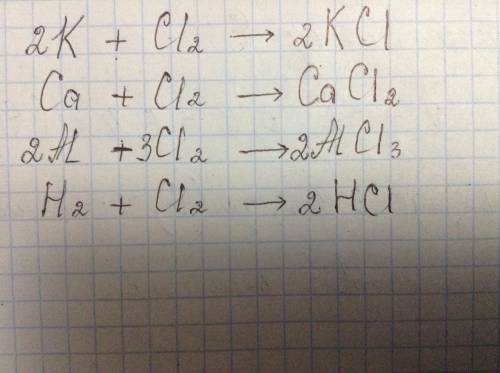 2K + Cl₂ → 2KCl
Ca + Cl₂ → CaCl₂
2Al + 3Cl₂ → 2AlCl₃
H₂ + Cl₂ → 2HCl